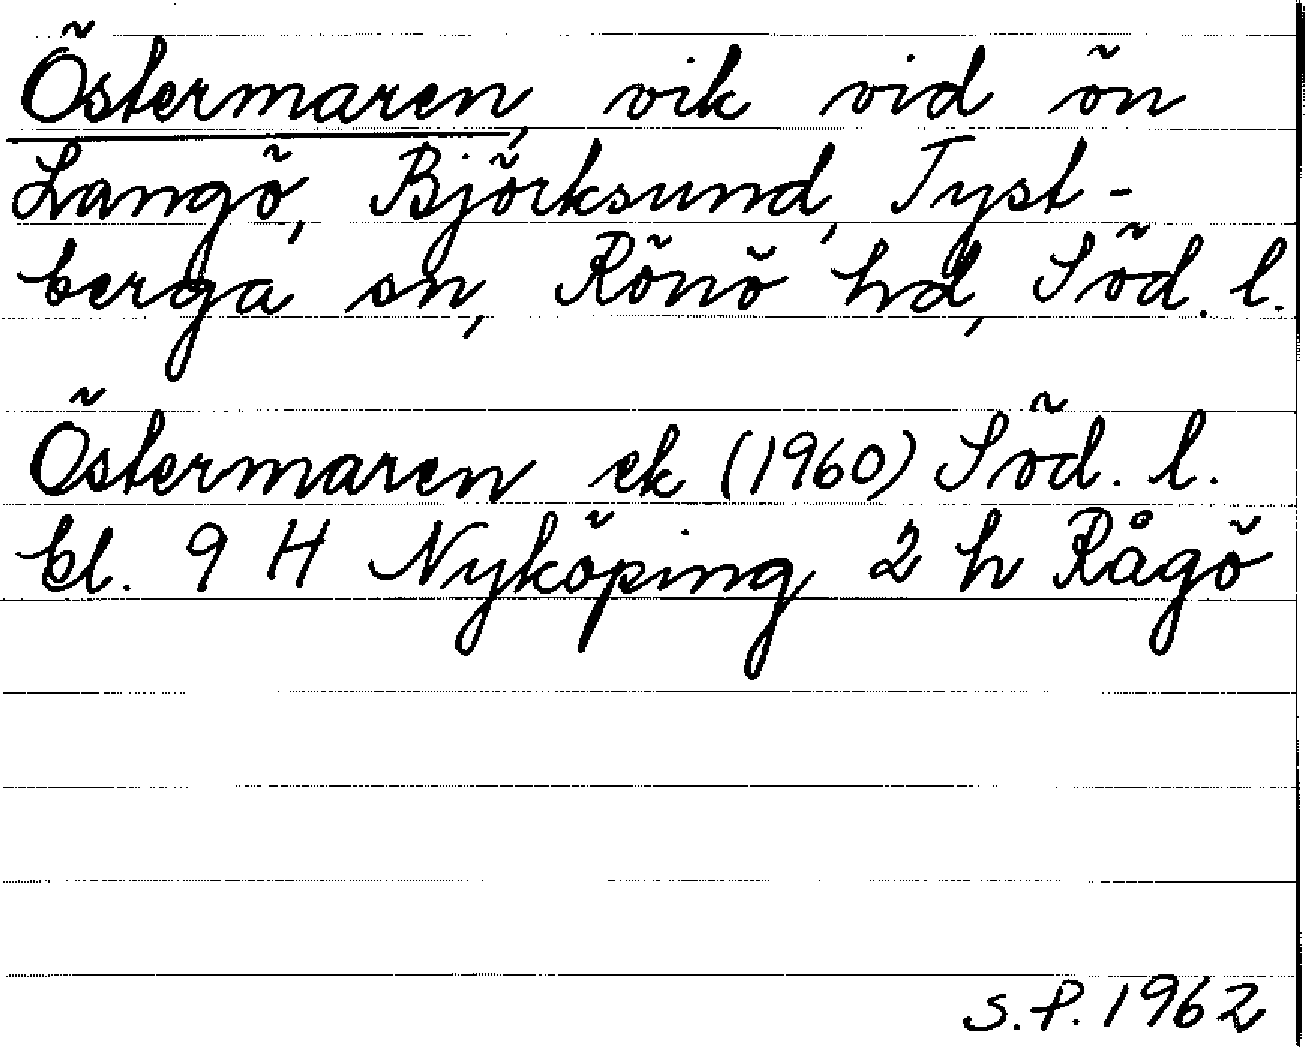 Östermaren, vik vid ön
Langö, Björksund, Tyst-
berga sn, Rönö hd, Söd. l.
Östermaren ek (1960) Söd. l.
bl. 9 H Nyköping 2 h Rågö
S.P. 1962